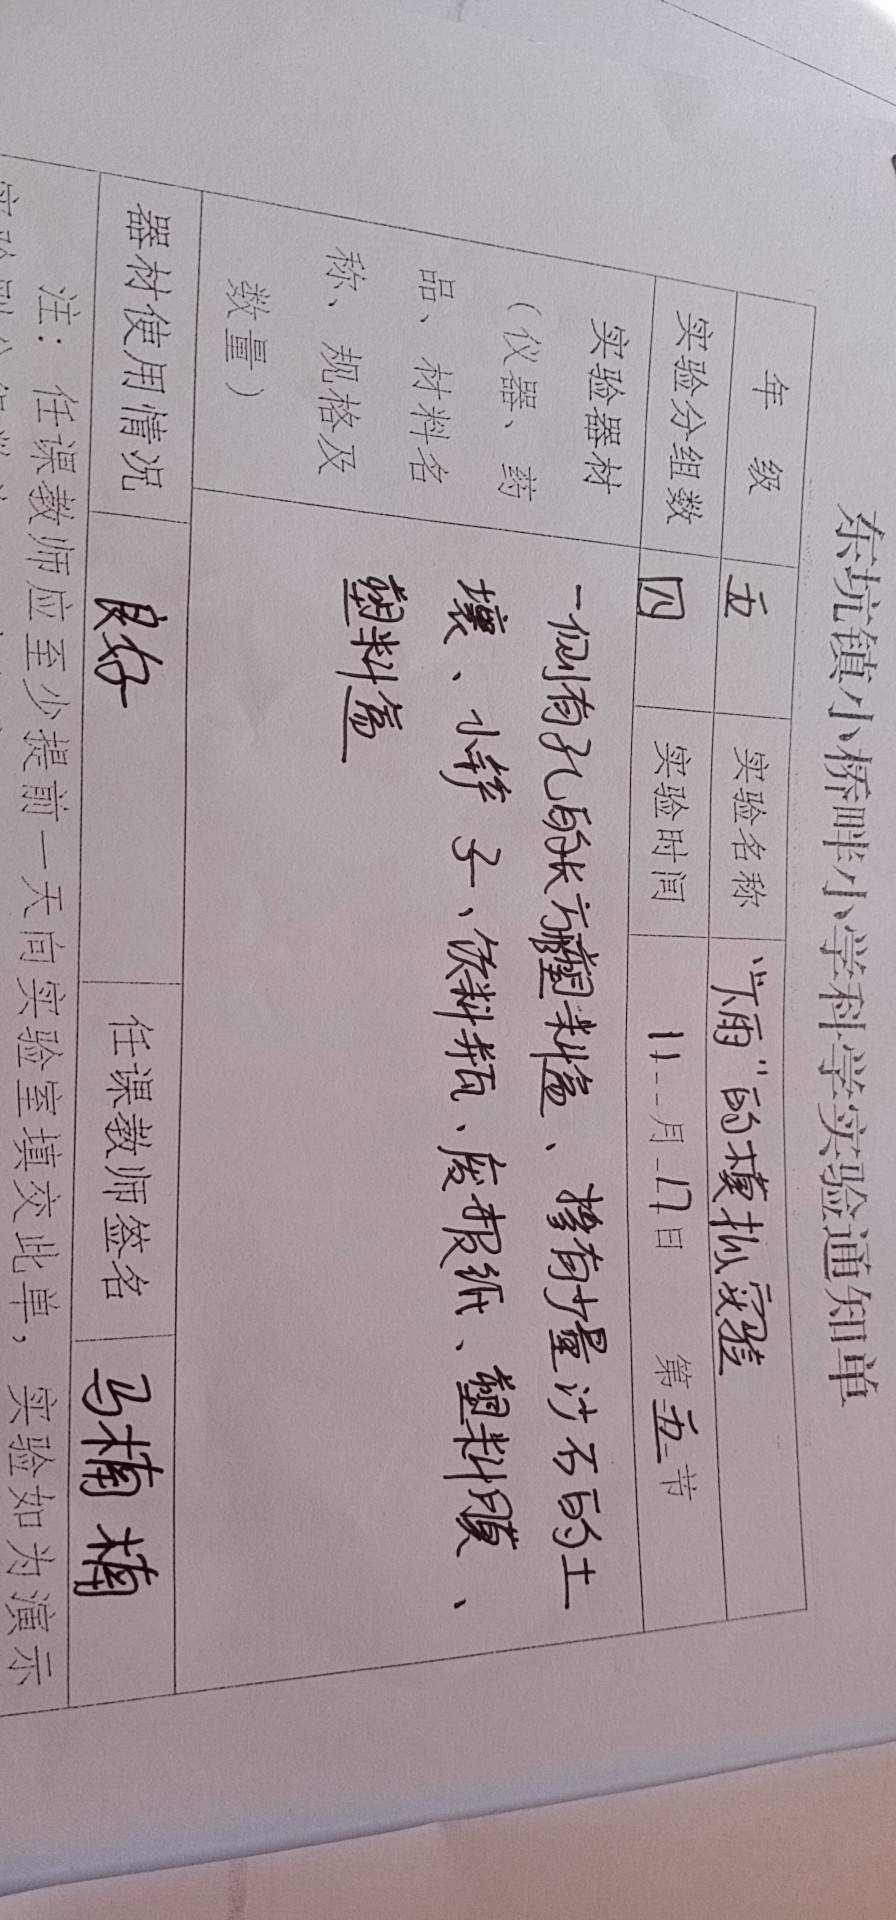 东坑镇小桥畔小学科学实验通知单
年 级 五 实验名称 “下雨”的模拟实验
实验分组数 四 实验时间 11月17日 第五节
实验器材
（仪器、药
品、材料名
称、规格及
数量）
一侧有孔的长方塑料盒、掺有少量沙石的土
壤、小铲子、饮料瓶、废报纸、塑料膜、
塑料盒
器材使用情况 良好 任课教师签名 马楠楠
注：任课教师应至少提前一天向实验室填交此单，实验如为演示